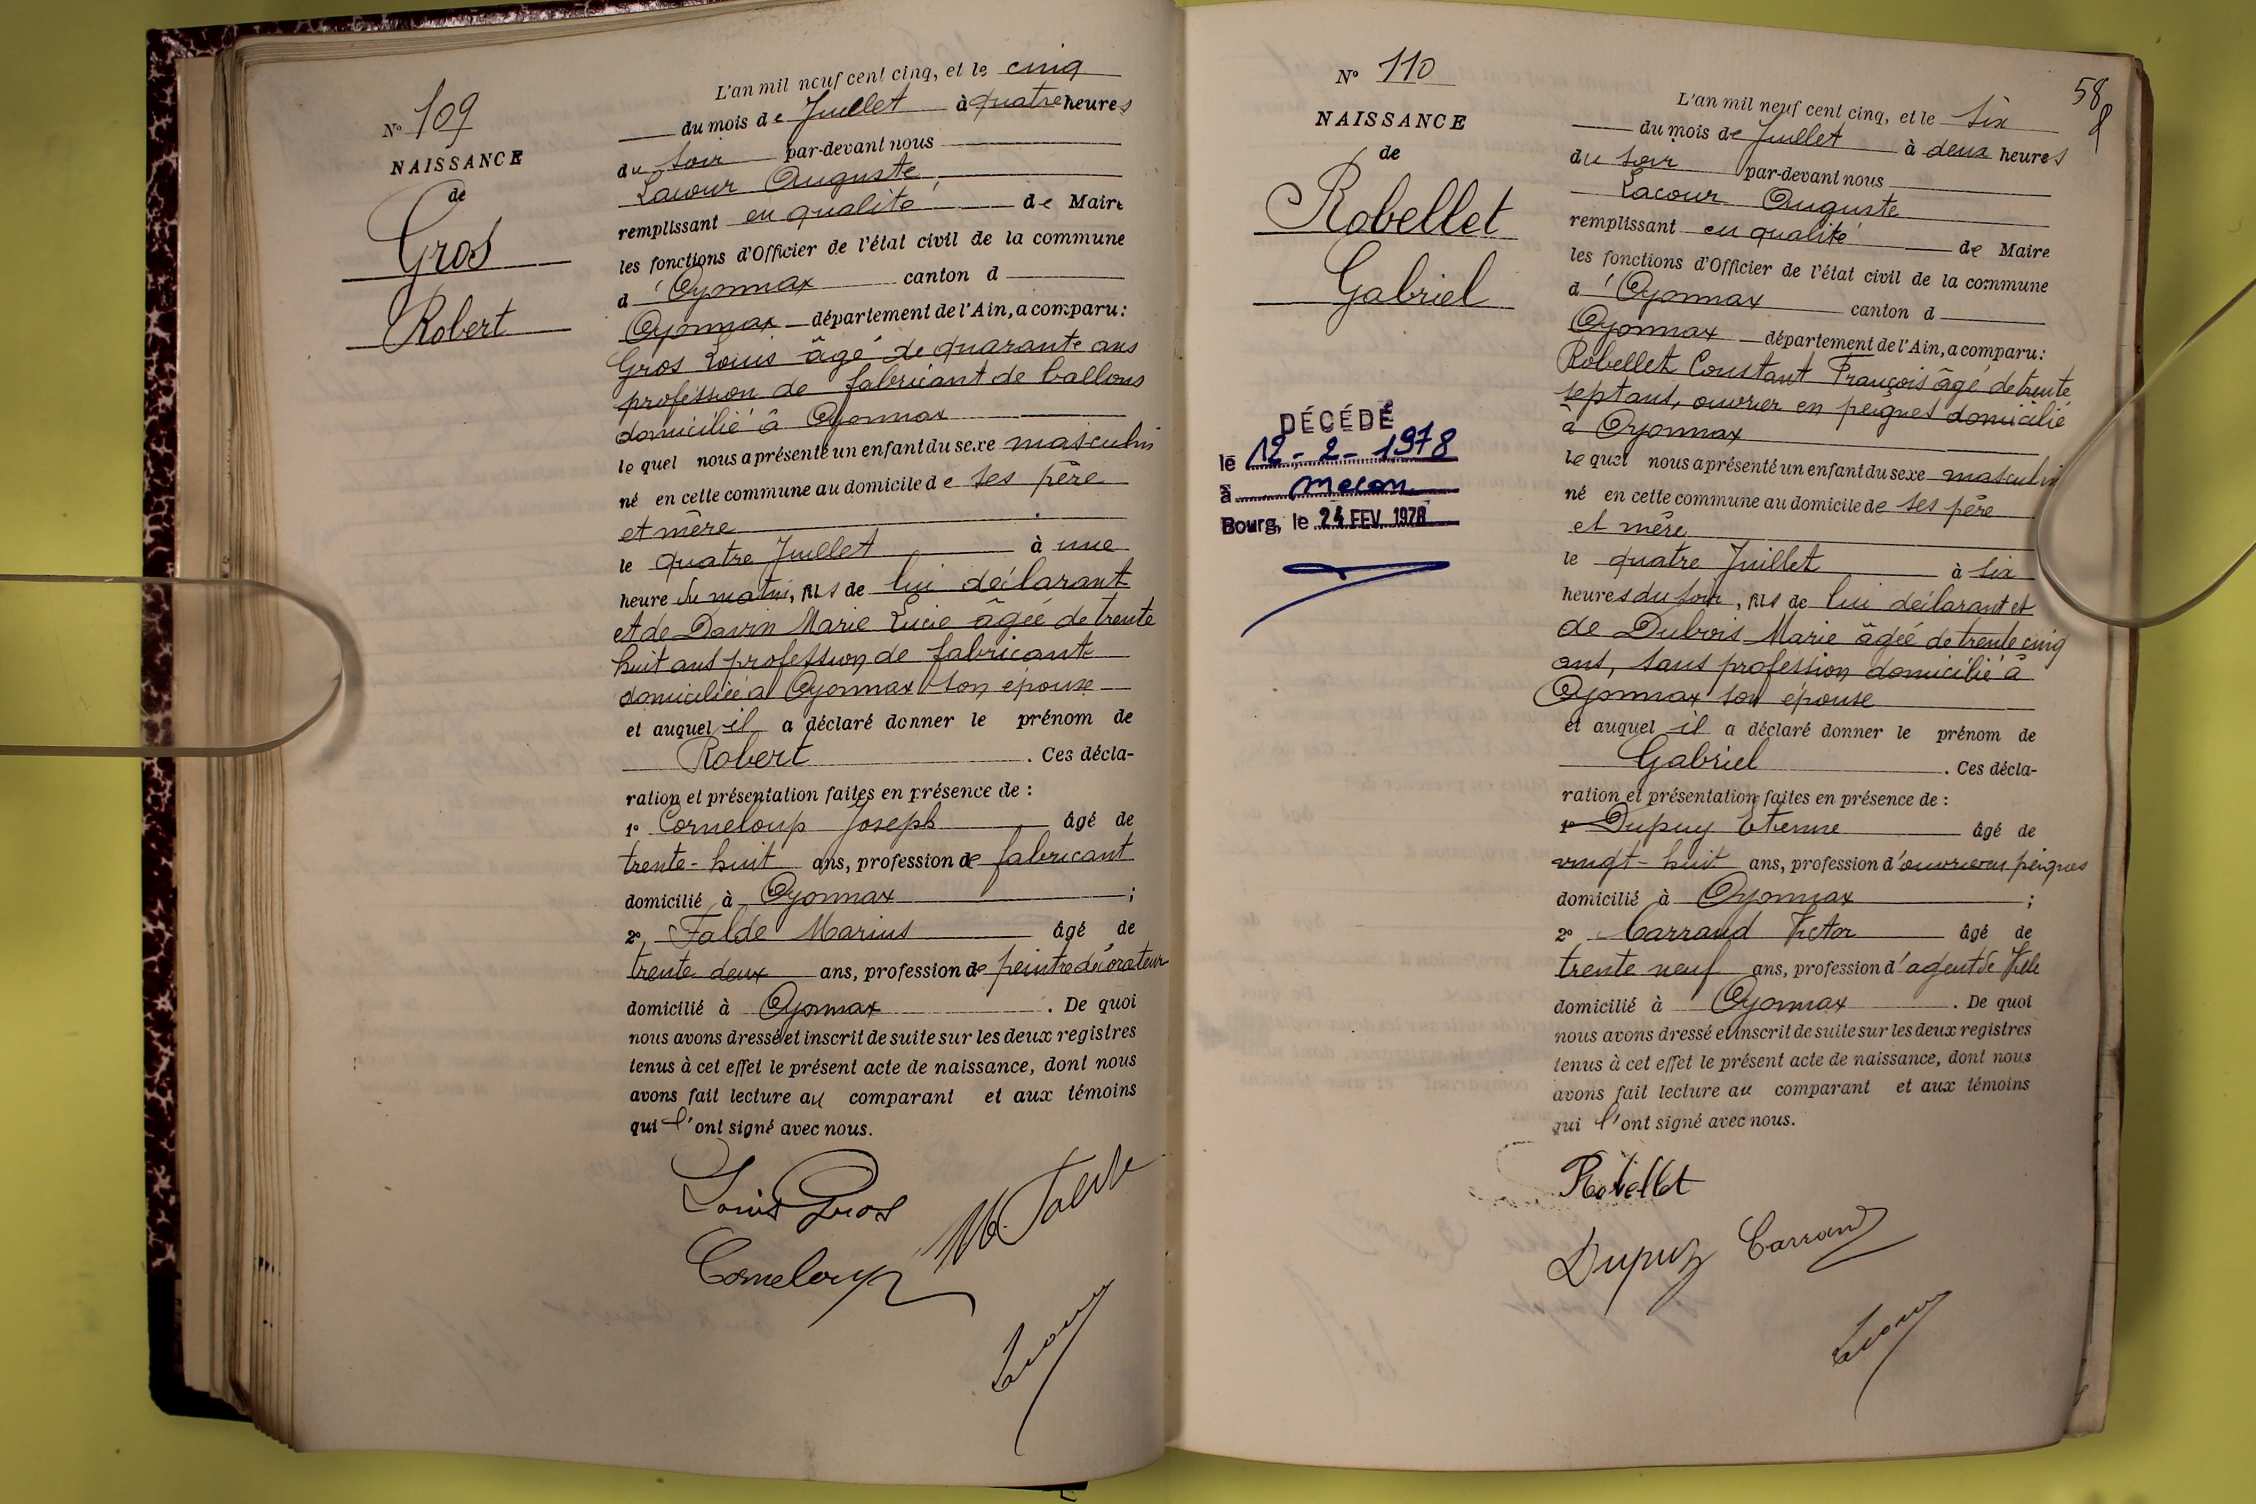 N° 109
NAISSANCE
de
Gros
Robert
L'an mil neuf cent cinq, et le cinq
du mois de Juillet à quatre heures
du soir par-devant nous
Lacour Auguste
remplissant en qualité de Maire
les fonctions d'Officier de l'état civil de la commune
d'Oyonnax canton d
Oyonnax département de l'Ain, a comparu:
Gros Louis âgé de quarante ans
profession de fabricant de ballons
domicilié à Oyonnax
le quel nous a présenté un enfant du sexe masculin
né en cette commune au domicile de ses père
et mère
le quatre Juillet à une
heure du matin, fils de lui déclarant
et de Davin Marie Lucie âgée de trente
huit ans profession de fabricante
domiciliée à Oyonnax son épouse
et auquel il a déclaré donner le prénom de
Robert . Ces décla-
ration et présentation faites en présence de :
1° Corneloup Joseph âgé de
trente-huit ans, profession de fabricant
domicilié à Oyonnax ;
2° Falde Marius âgé de
trente deux ans, profession de peintre décorateur
domicilié à Oyonnax . De quoi
nous avons dressé et inscrit de suite sur les deux registres
tenus à cet effet le présent acte de naissance, dont nous
avons fait lecture au comparant et aux témoins
qui l'ont signé avec nous.
Louis Gros
M. Falde
Corneloup
Lacour
58
N° 110
NAISSANCE
de
Robellet
Gabriel
DÉCÉDÉ
le 12-2-1978
à Mecon
Bourg, le 24 FEV. 1978
L'an mil neuf cent cinq, et le six
du mois de Juillet à deux heures
du soir par-devant nous
Lacour Auguste
remplissant en qualité de Maire
les fonctions d'Officier de l'état civil de la commune
d'Oyonnax canton d
Oyonnax département de l'Ain, a comparu:
Robellet Constant François âgé de trente
sept ans, ouvrier en peignes domicilié
à Oyonnax
le quel nous a présenté un enfant du sexe masculin
né en cette commune au domicile de ses père
et mère
le quatre Juillet à six
heures du soir, fils de lui déclarant et
de Dubois Marie âgée de trente cinq
ans, sans profession domicilié à
Oyonnax son épouse
et auquel il a déclaré donner le prénom de
Gabriel . Ces décla-
ration et présentation faites en présence de :
1° Dupuy Etienne âgé de
vingt-huit ans, profession d'ouvrier en peignes
domicilié à Oyonnax ;
2° Carrand Victor âgé de
trente neuf ans, profession d'agent de Ville
domicilié à Oyonnax . De quoi
nous avons dressé et inscrit de suite sur les deux registres
tenus à cet effet le présent acte de naissance, dont nous
avons fait lecture au comparant et aux témoins
qui l'ont signé avec nous.
Robellet
Dupuy Carrand
Lacour